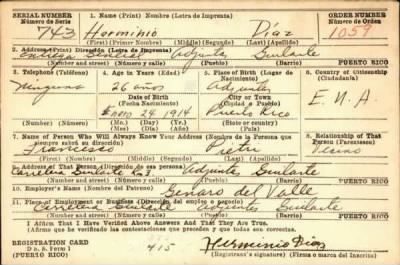 SERIAL NUMBER 1. Name (Print) Nombre (Letra de Imprenta) ORDER NUMBER
Número de Serie Número de Orden
743 Herminio Díaz 1059
(First) (Primer Nombre) (Middle) (Segundo) (Last) (Apellido)
2. Address (Print) Dirección (Letra de Imprenta)
Entrega General Adjunta Guilarte
(Number) Número (Street) Número y calle (Town) (Pueblo) (Barrio) PUERTO RICO
3. Telephone (Teléfono) 4. Age in Years (Edad) 5. Place of Birth (Lugar de Nacimiento) 6. Country of Citizenship (Ciudadanía)
Ninguno 26 años Adjuntas
Date of Birth City or Town
(Fecha Nacimiento) (Ciudad o Pueblo)
Enero 24 1914 Puerto Rico E. U. A.
(Number) (Número) (Mo.) (Day) (Yr.) State or country
(Mes) (Día) (Año) (Estado o nación)
7. Name of Person Who Will Always Know Your Address (Nombre de la Persona que siempre sabrá su dirección) 8. Relationship of That Person (Parentesco)
Francisco Pietri
(First) (Nombre) (Middle) (Segundo) (Last) (Apellido)
9. Address of That Person (Dirección de esa persona)
Carretera Guilarte K.3 Adjunta Guilarte
(Number) Número (Street) Número y calle (Town) (Pueblo) (Barrio) PUERTO RICO
10. Employer's Name (Nombre del Patrono)
Genaro del Valle
11. Place of Employment or Business (Dirección del empleo o negocio)
Carretera Guilarte Adjunta Guilarte
(Number) Número (Street) Número y calle (Town) (Pueblo) (Barrio) PUERTO RICO
I Affirm That I Have Verified Above Answers And That They Are True.
(Afirmo que he verificado las contestaciones que preceden y que son todas ciertas)
REGISTRATION CARD
D. s. S. Form 1 415 Herminio Diaz
(Registrant's signature) (Firma o marca del inscrito)